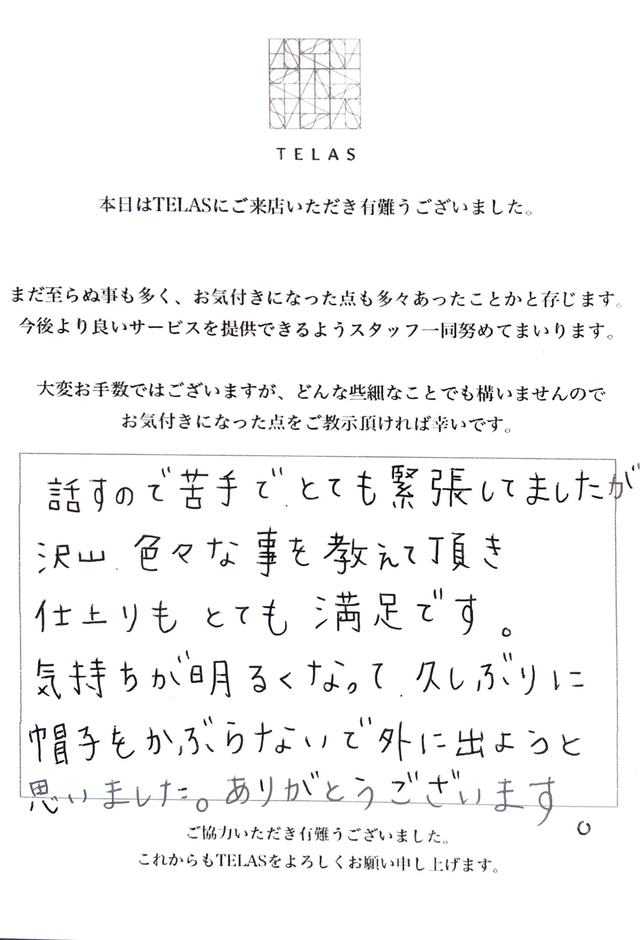 TELAS
本日はTELASにご来店いただき有難うございました。
まだ至らぬ事も多く、お気付きになった点も多々あったことかと存じます。
今後より良いサービスを提供できるようスタッフ一同努めてまいります。
大変お手数ではございますが、どんな些細なことでも構いませんので
お気付きになった点をご教示頂ければ幸いです。
話すので苦手で、とても緊張してましたが
沢山、色々な事を教えて頂き
仕上りも とても 満足です。
気持ちが明るくなって、久しぶりに
帽子をかぶらないで外に出ようと
思いました。ありがとうございます。
ご協力いただき有難うございました。
これからもTELASをよろしくお願い申し上げます。